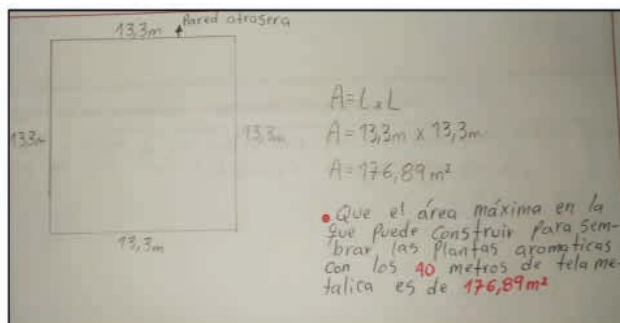 Pared atrasera
13,3m
13,3m
13,3m
13,3m
A=L x L
A=13,3m x 13,3m
A=176,89m²
• Que el área máxima en la
que puede construir para sem-
brar las plantas aromaticas
con los 40 metros de tela me-
talica es de 176,89m²